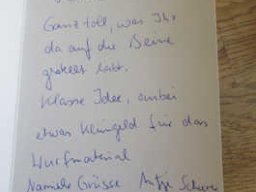 Ganz toll, was Ihr
da auf die Beine
gestellt habt.
Klasse Idee, anbei
etwas Kleingeld für das
Wurfmaterial
Grüsse Antje